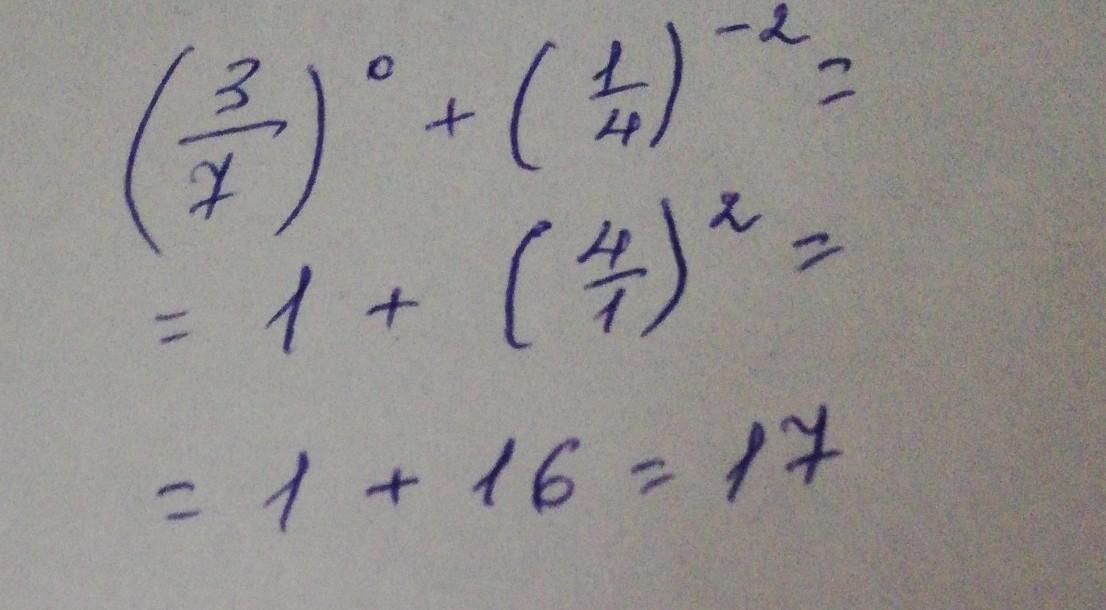 (3/7)⁰ + (1/4)⁻² =
= 1 + (4/1)² =
= 1 + 16 = 17